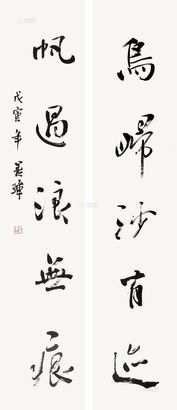 鳥歸沙有迹
帆過浪無痕
戊寅年